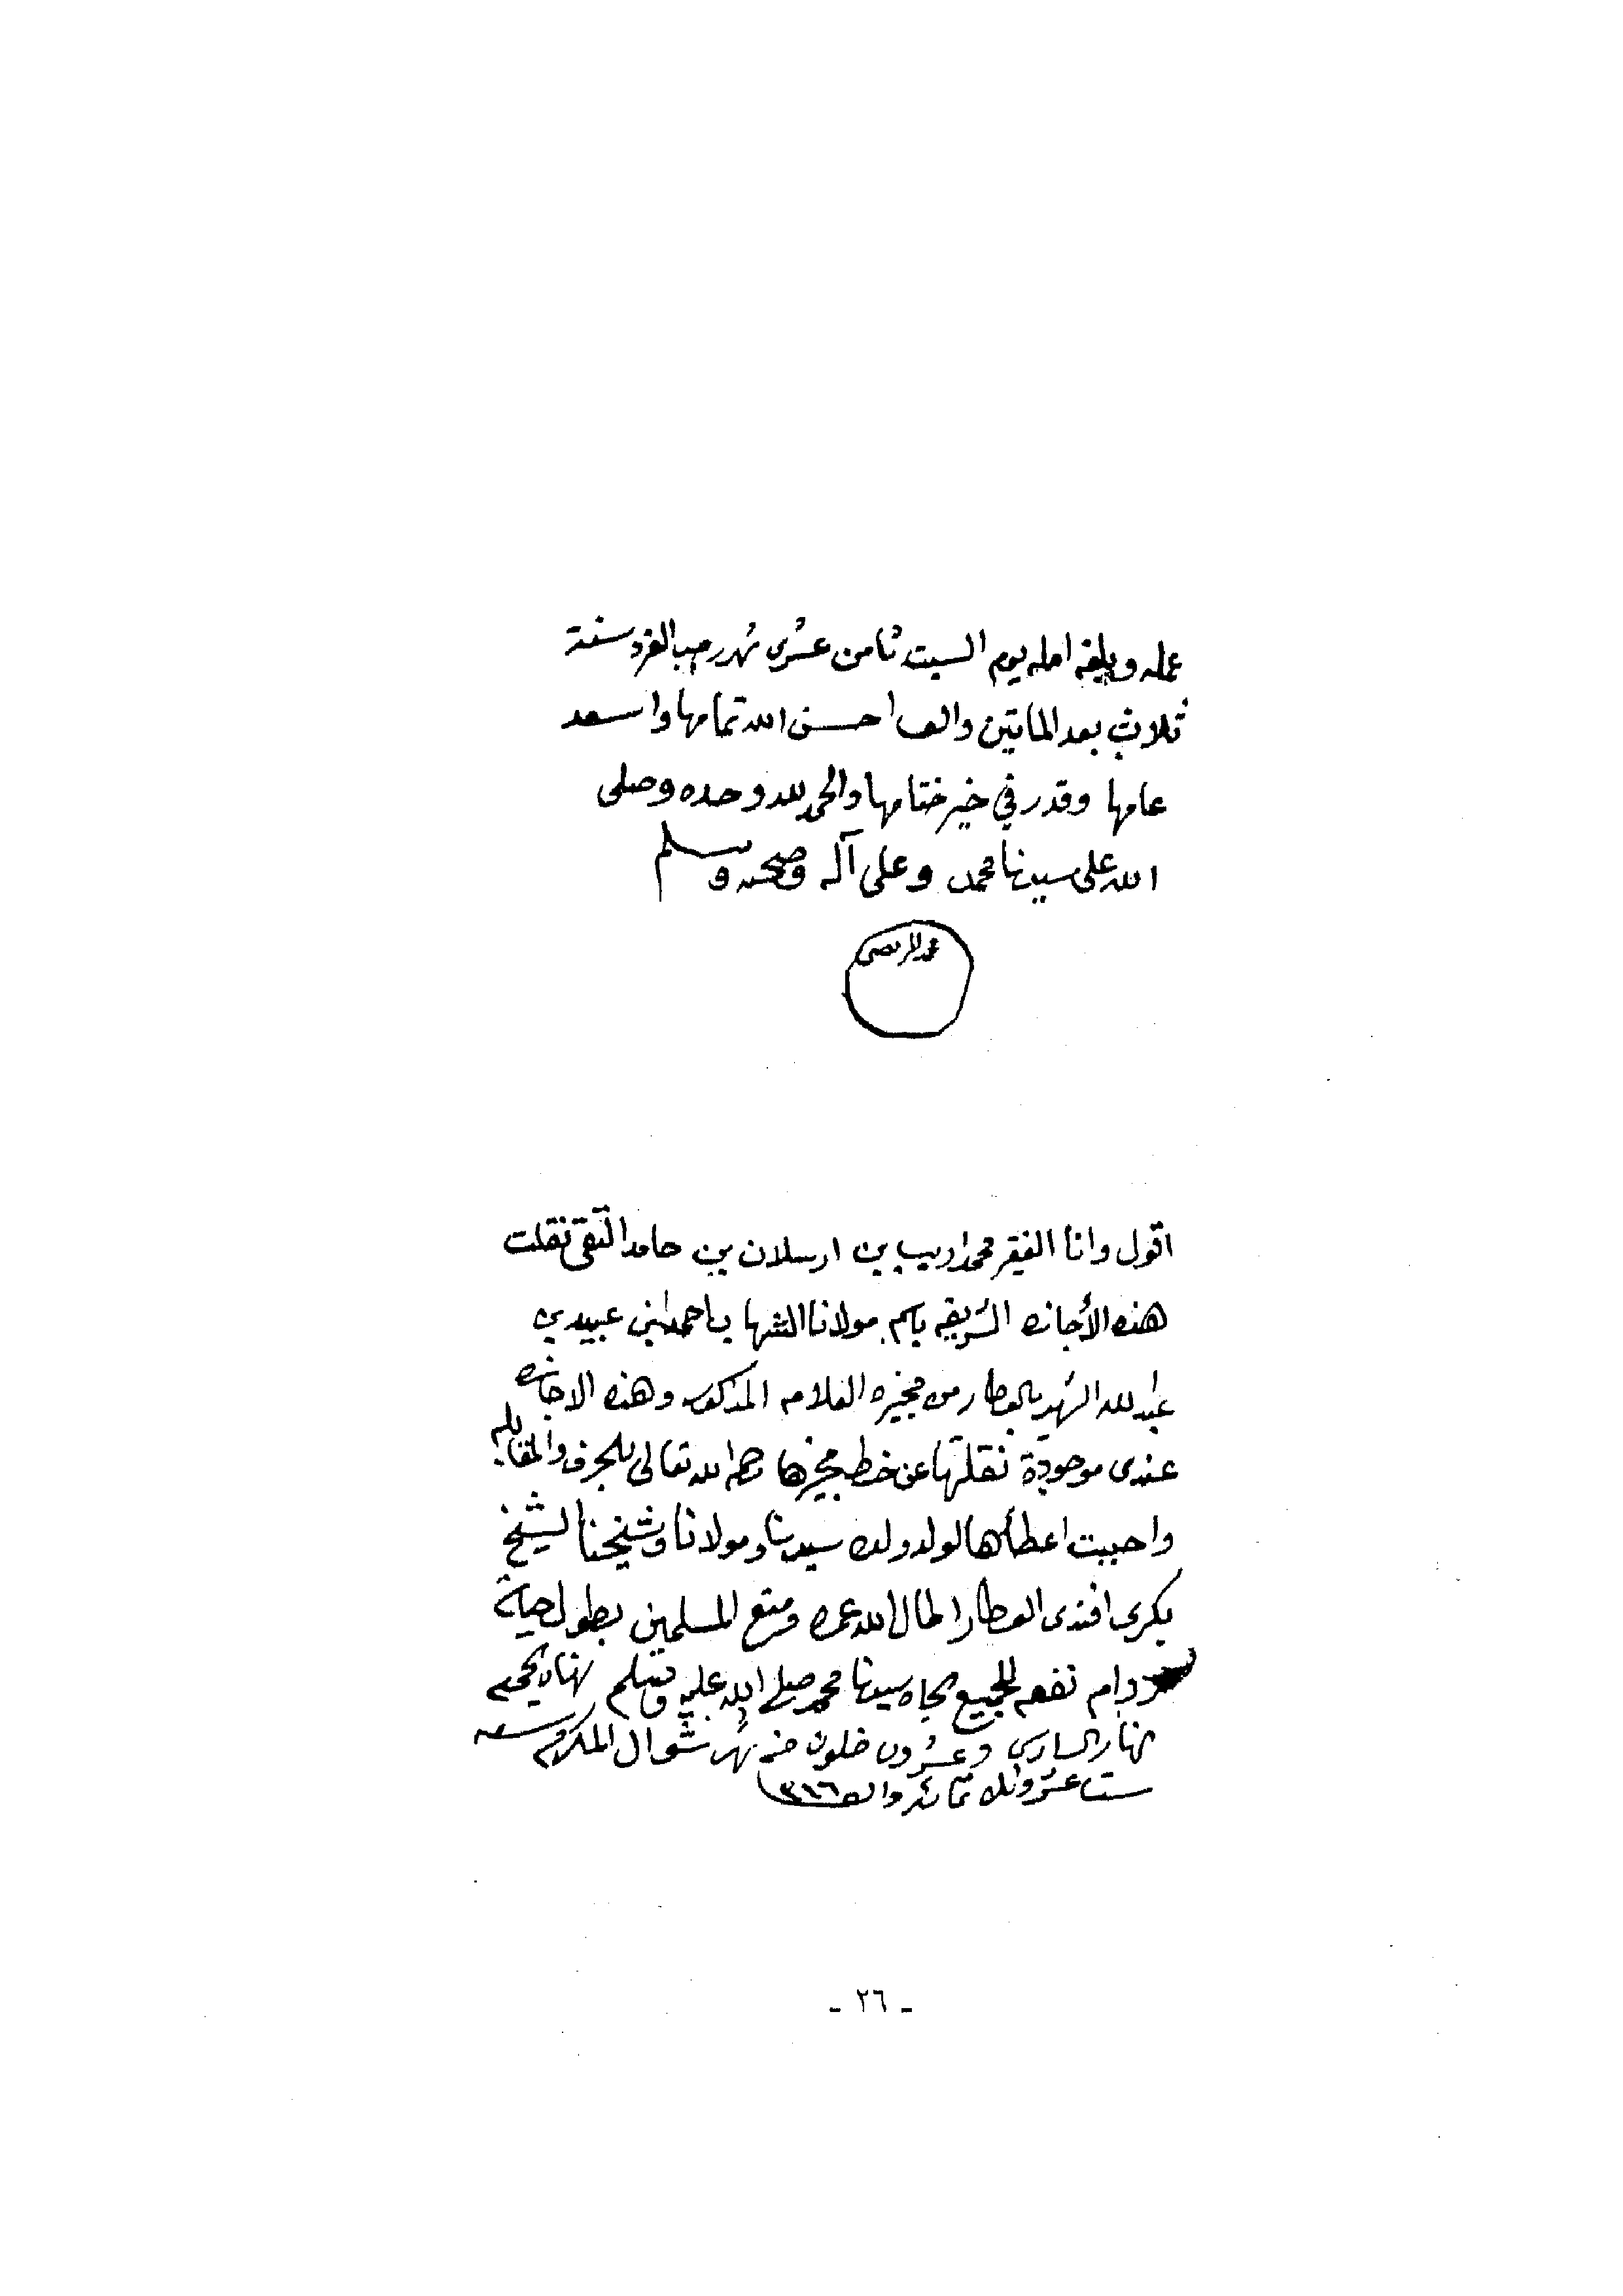 عمله وبلغه امله يوم السبت ثامن عشري شهر رجب الفرد سنة
ثلاث بعد الماتين والف احسن الله تمامها واسعد
عامها وقدر في خير ختامها والحمد لله وحده وصلى
الله على سيدنا محمد وعلى آله وصحبه وسلم
محمد المرتضى
اقول وانا الفقير محمد اديب بن ارسلان بن حامد التقي نقلت
هذه الأجازه الشريفه باسم مولانا الشهاب احمد بن عبيد بن
عبد الله الشهير بالعطار من مجيزه العلامه المذكور وهذه الاجازه
عندي موجودة نقلتها عن خط مجيزها رحمه الله تعالى بالحرف والمقابله
واحببت اعطأها لولد ولده سيدنا ومولانا وشيخنا الشيخ
بكرى افندى العطار اطال الله عمره ومتع المسلمين بطول حياته
ودام نفعه للجميع بجاه سيدنا محمد صلى الله عليه وسلم
نهار السادس وعشرون خلون من شهر شوال المكرم سنة
ست عشر وثلاثمائة والف ١٣١٦
- ٢٦ -